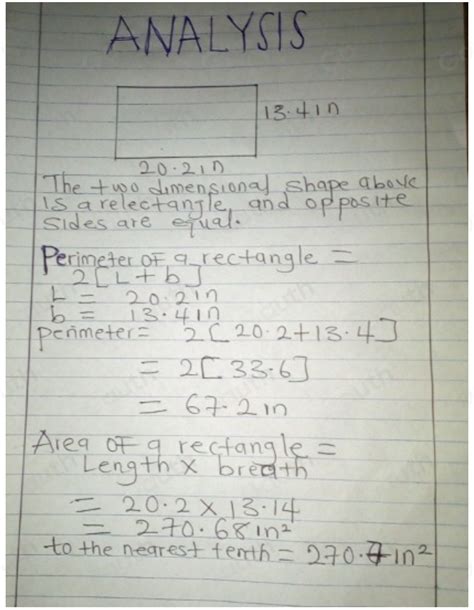 ANALYSIS
13.4in
20.2in
The two dimensional shape above
is a relectangle and opposite
sides are equal.
Perimeter of a rectangle =
2[L+b]
L = 20.2in
b = 13.4in
perimeter = 2[20.2+13.4]
= 2[33.6]
= 67.2in
Area of a rectangle =
Length x breadth
= 20.2 x 13.14
= 270.68in²
to the nearest tenth = 270.7in²